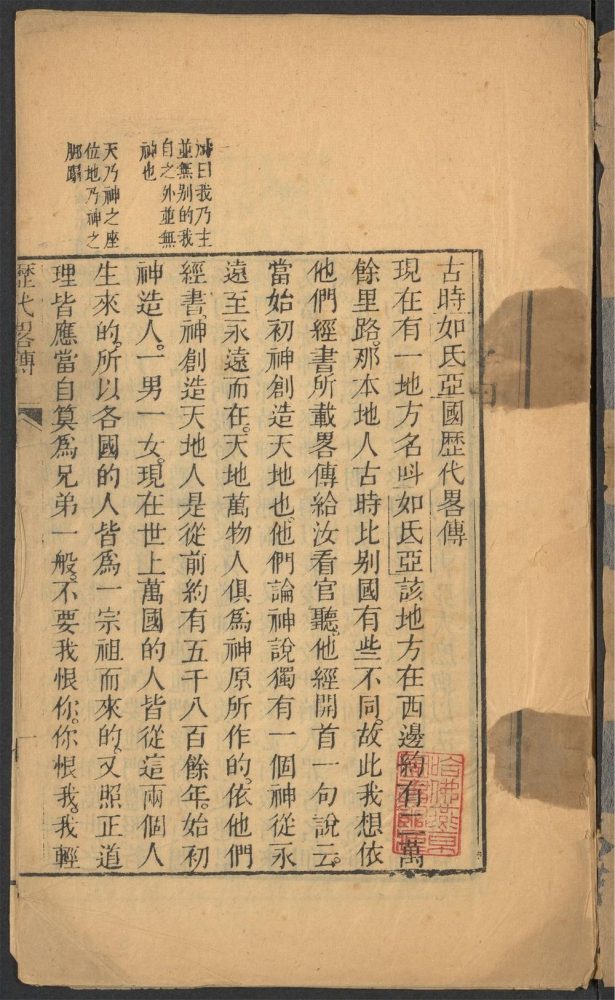 神曰我乃主
並無别的我
自之外並無
神也
天乃神之座
位地乃神之
脚蹋
古時如氐亞國歷代畧傳
現在有一地方名呌如氐亞該地方在西邊約有二萬
餘里路。那本地人古時比别國有些不同。故此我想依
他們經書所載畧傳給汝看官聽。他經開首一句說云。
當始初神創造天地也。他們論神說獨有一個神從永
遠至永遠而在。天地萬物人俱爲神原所作的。依他們
經書。神創造天地人是從前約有五千八百餘年。始初
神造人。一男一女。現在世上萬國的人皆從這兩個人
生來的。所以各國的人皆爲一宗祖而來的。又照正道
理皆應當自算爲兄弟一般。不要我恨你。你恨我。我輕
歷代畧傳
一
哈佛燕京